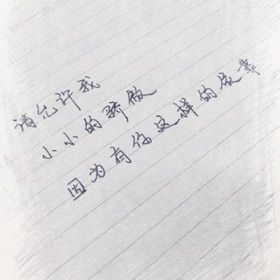 请允许我
小小的骄傲
因为有你这样的依靠